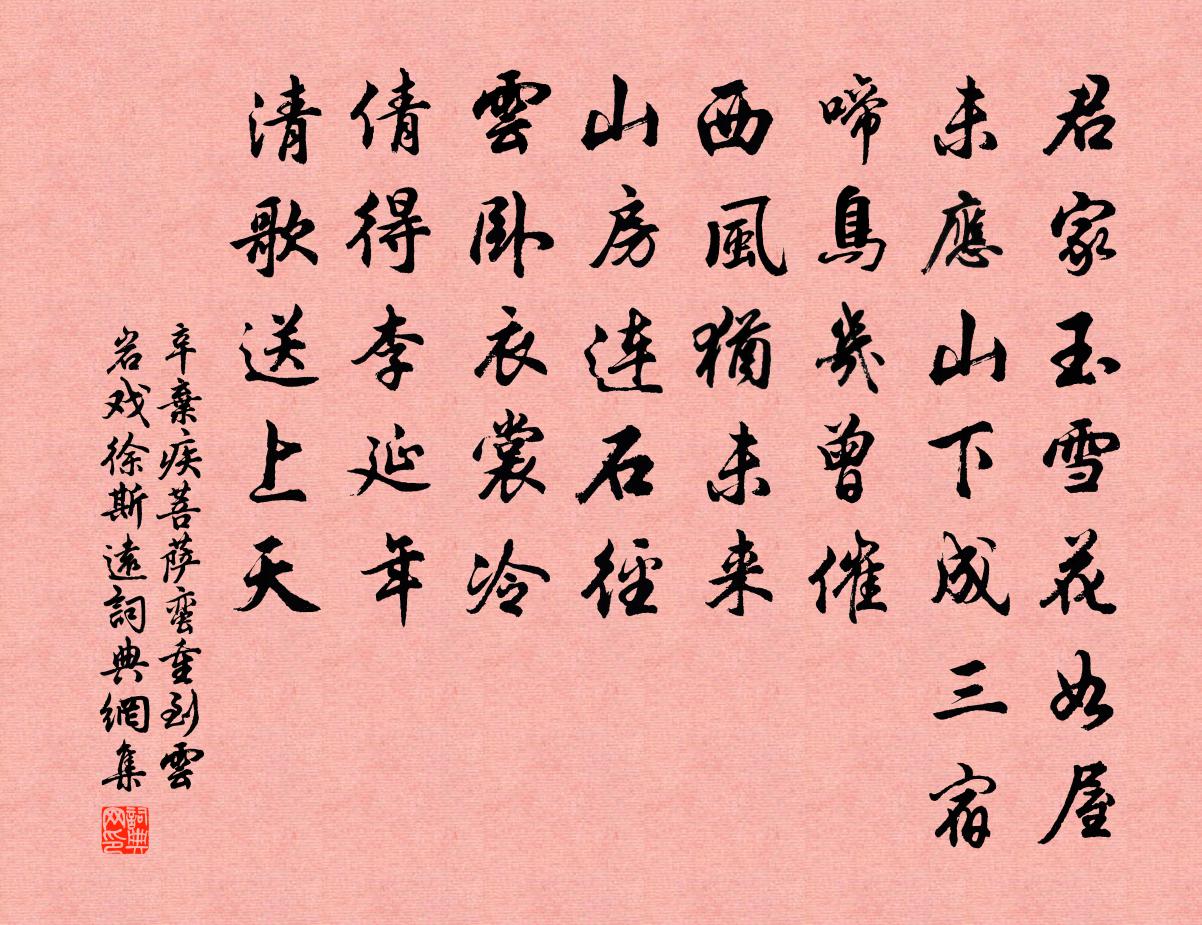 君家玉雪花如屋
未應山下成三宿
啼鳥幾曾催
西風猶未來
山房連石徑
雲臥衣裳冷
倩得李延年
清歌送上天
辛棄疾菩萨蛮重到雲
岩戏徐斯遠詞典網集
詞典网印